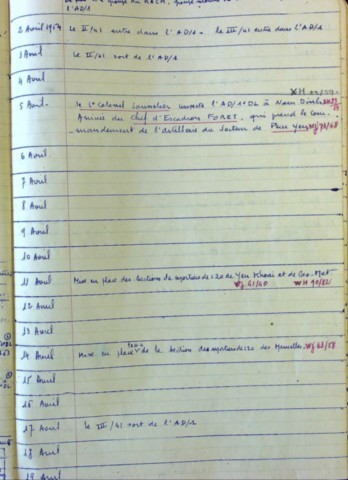 l'AD/1
2 Avril 1954 Le II/41 entre dans l'AD/1. le III/41 entre dans l'AD/1
3 Avril Le II/41 sort de l'AD/1
4 Avril
5 Avril. le Lt Colonel inspecte l'AD/1° DL à Nam Dinh
Arrivée du Chef d'Escadron FORET, qui prend le com-
-mandement de l'artillerie du Secteur de Phu Ly
6 Avril.
7 Avril
8 Avril
9 Avril
10 Avril
11 Avril Mise en place des Sections de mortiers de 120 de Yen Khoai et de
Wj 41/40 WH 90/82
12 Avril
13 Avril
14 Avril Mise en place de la Section de mortiers de 120 des Wj 63/58
15 Avril
16 Avril
17 Avril le III/41 sort de l'AD/1
18 Avril
19 Avril